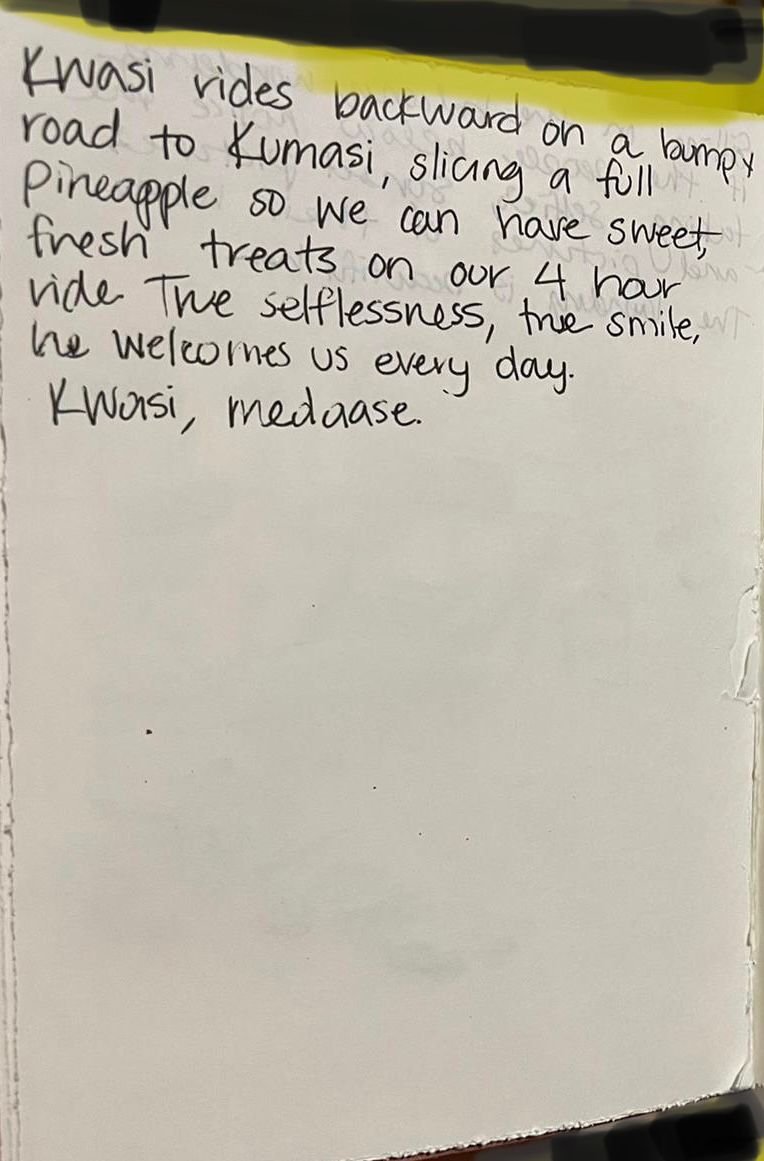 Kwasi rides backward on a bumpy
road to Kumasi, slicing a full
Pineapple so we can have sweet,
fresh treats on our 4 hour
ride. True selflessness, true smile,
he welcomes us every day.
Kwasi, medaase.